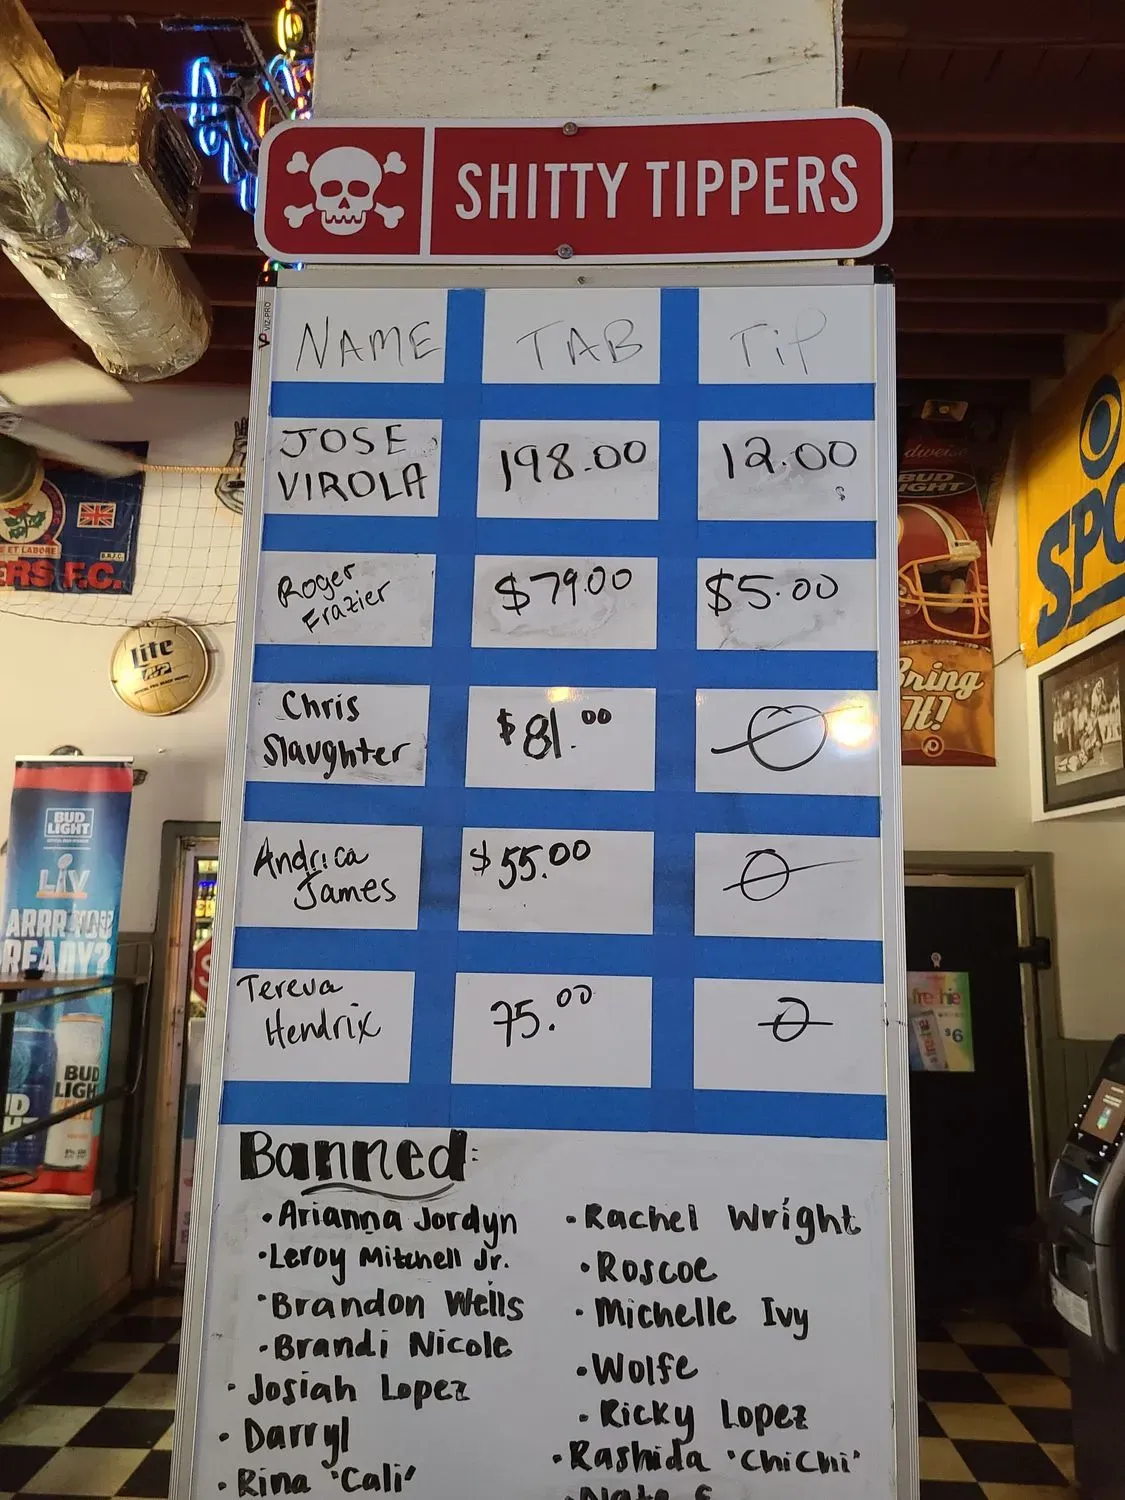 SHITTY TIPPERS
VIZ-PRO
NAME TAB TiP
JOSE
VIROLA 198.00 12.00
Roger
Frazier $79.00 $5.00
Chris
Slaughter $81.00 0
Andrica
James $55.00 0
Tereva
Hendrix 75.00 0
Banned:
• Arianna Jordyn
• Leroy Mitchell Jr.
• Brandon Wells
• Brandi Nicole
• Josiah Lopez
• Darryl
• Rina "Cali"
• Rachel Wright
• Roscoe
• Michelle Ivy
• Wolfe
• Ricky Lopez
• Rashida "ChiChi"
ET LABORE
B.R.F.C.
ERS F.C.
Lite
BUD
LIGHT
LIV
ARRR YOU
READY?
BUD
LIGH
BUD
LIGHT
Bring
It!
SPO
$6